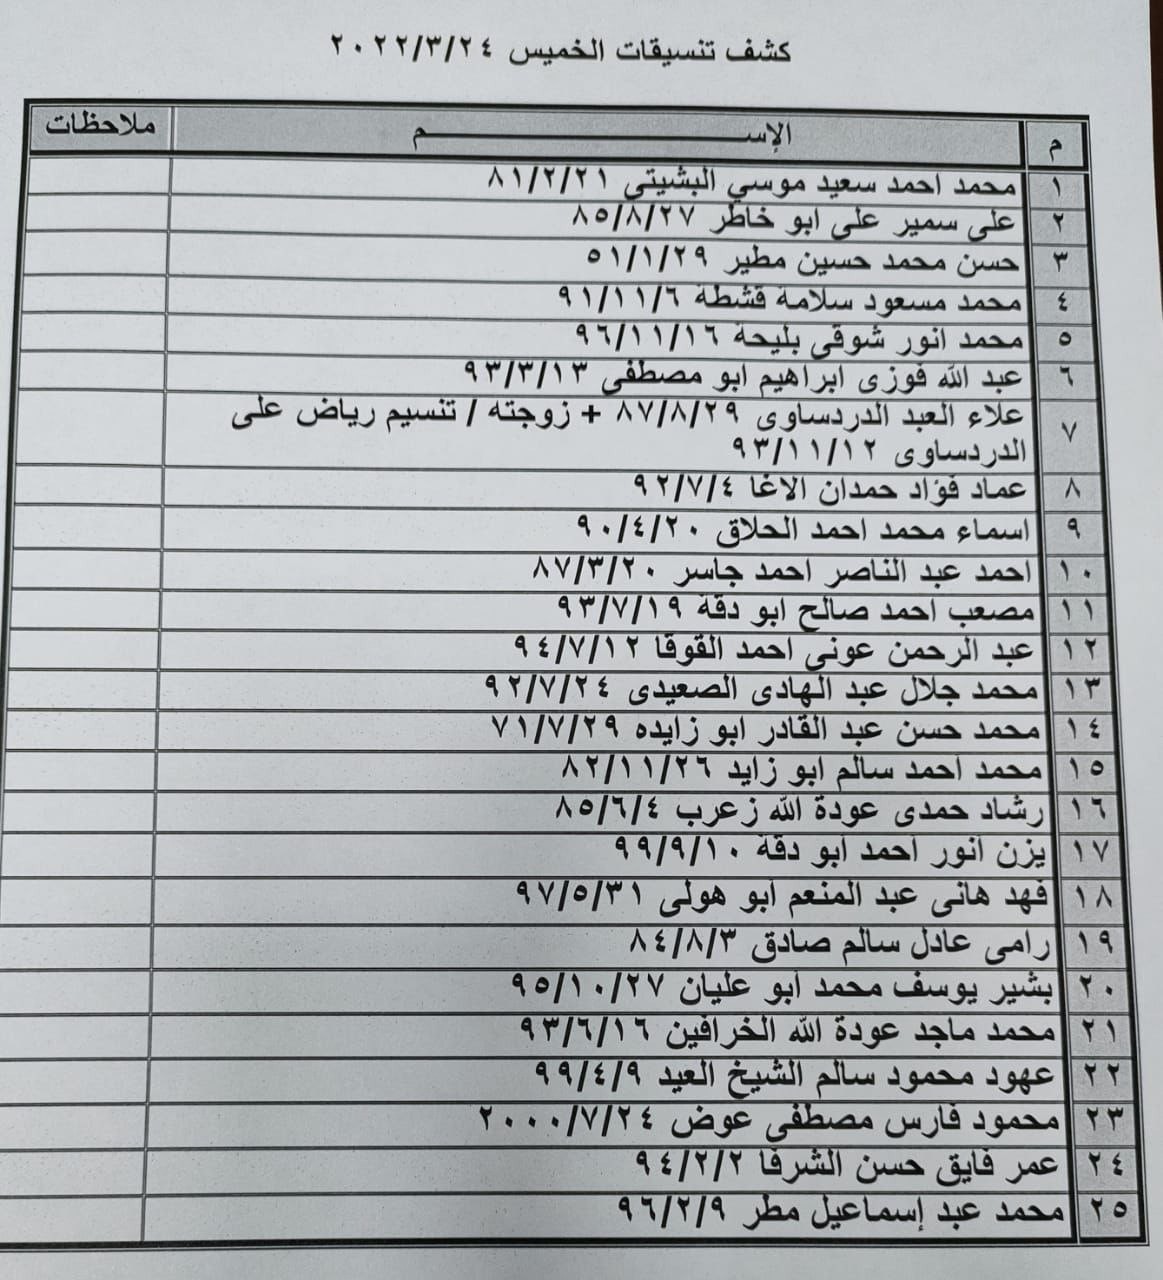 كشف تنسيقات الخميس ٢٠٢٢/٣/٢٤
م الإســـــــم ملاحظات
١ محمد احمد سعيد موسي البشيتي ٨١/٢/٢١
٢ على سمير على ابو خاطر ٨٥/٨/٢٧
٣ حسن محمد حسين مطير ٥١/١/٢٩
٤ محمد مسعود سلامة قشطة ٩١/١١/٦
٥ محمد انور شوقي بليحة ٩٦/١١/١٦
٦ عبد الله فوزى ابراهيم ابو مصطفى ٩٣/٣/١٣
٧ علاء العبد الدردساوى ٨٧/٨/٢٩ + زوجته / تنسيم رياض على
الدردساوى ٩٣/١١/١٢
٨ عماد فؤاد حمدان الاغا ٩٢/٧/٤
٩ اسماء محمد احمد الحلاق ٩٠/٤/٢٠
١٠ احمد عبد الناصر احمد جاسر ٨٧/٣/٢٠
١١ مصعب احمد صالح ابو دقة ٩٣/٧/١٩
١٢ عبد الرحمن عوني احمد القوقا ٩٤/٧/١٢
١٣ محمد جلال عبد الهادى الصعيدى ٩٢/٧/٢٤
١٤ محمد حسن عبد القادر ابو زايده ٧١/٧/٢٩
١٥ محمد احمد سالم ابو زايد ٨٢/١١/٢٦
١٦ رشاد حمدى عودة الله زعرب ٨٥/٦/٤
١٧ يزن انور احمد ابو دقة ٩٩/٩/١٠
١٨ فهد هانى عبد المنعم ابو هولى ٩٧/٥/٣١
١٩ رامى عادل سالم صادق ٨٤/٨/٣
٢٠ بشير يوسف محمد ابو عليان ٩٥/١٠/٢٧
٢١ محمد ماجد عودة الله الخرافين ٩٣/٦/١٦
٢٢ عهود محمود سالم الشيخ العيد ٩٩/٤/٩
٢٣ محمود فارس مصطفى عوض ٢٠٠٠/٧/٢٤
٢٤ عمر فايق حسن الشرفا ٩٤/٢/٢
٢٥ محمد عبد إسماعيل مطر ٩٦/٢/٩